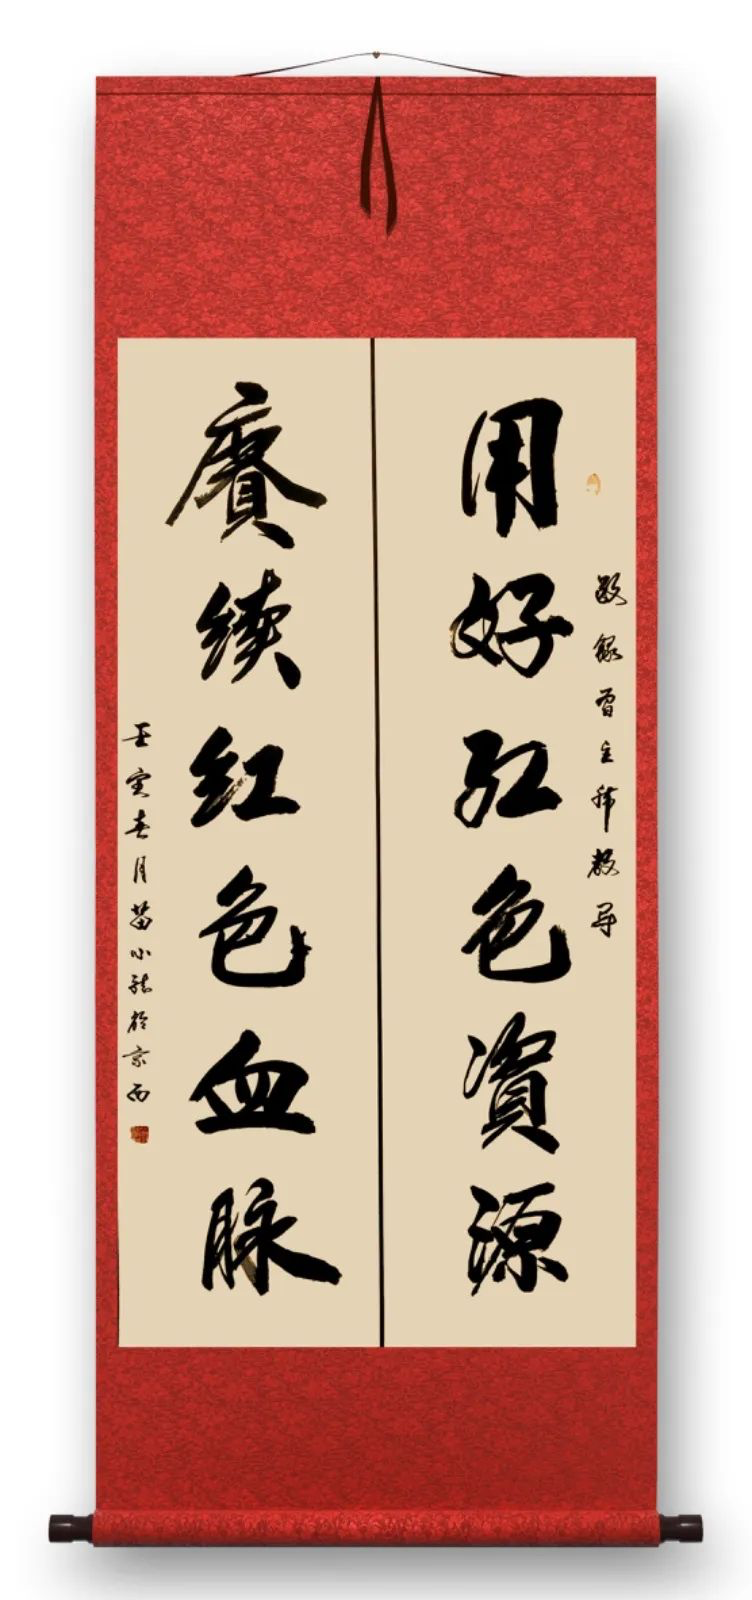 敬録習主席教导
用好红色資源
賡续红色血脉
壬寅春月苗小龙於京西